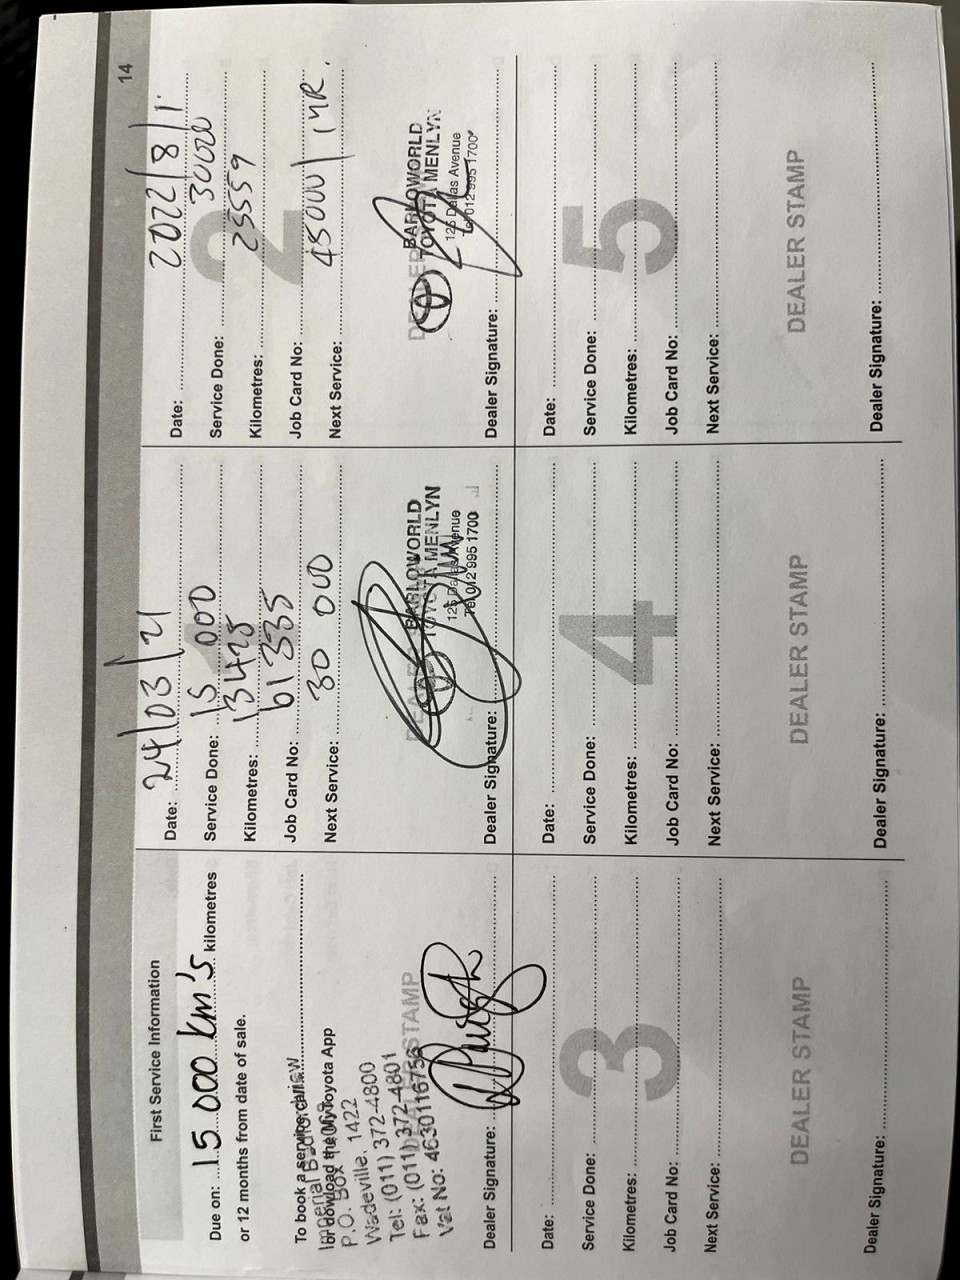 14
First Service Information
Due on: 15 000 km's kilometres
or 12 months from date of sale.
To book a service, call
or download the MyToyota App
P.O. Box
Wadeville, 1422
Tel: (011) 372-4800
Fax: (011) 372-4801
Vat No: 4630116756
DEALER STAMP
Dealer Signature:
Date: 24/03/21
Service Done: 15 000
Kilometres: 13428
Job Card No: 61335
Next Service: 30 000
DEALER STAMP
BARLOWORLD
TOYOTA MENLYN
125 Dallas Avenue
Tel 012 995 1700
Dealer Signature:
2
Date: 2022/8/1
Service Done: 30000
Kilometres: 25559
Job Card No:
Next Service: 45000/1YR.
DEALER
BARLOWORLD
TOYOTA MENLYN
125 Dallas Avenue
Tel 012 995 1700
Dealer Signature:
3
Date:
Service Done:
Kilometres:
Job Card No:
Next Service:
DEALER STAMP
Dealer Signature:
4
Date:
Service Done:
Kilometres:
Job Card No:
Next Service:
DEALER STAMP
Dealer Signature:
5
Date:
Service Done:
Kilometres:
Job Card No:
Next Service:
DEALER STAMP
Dealer Signature: